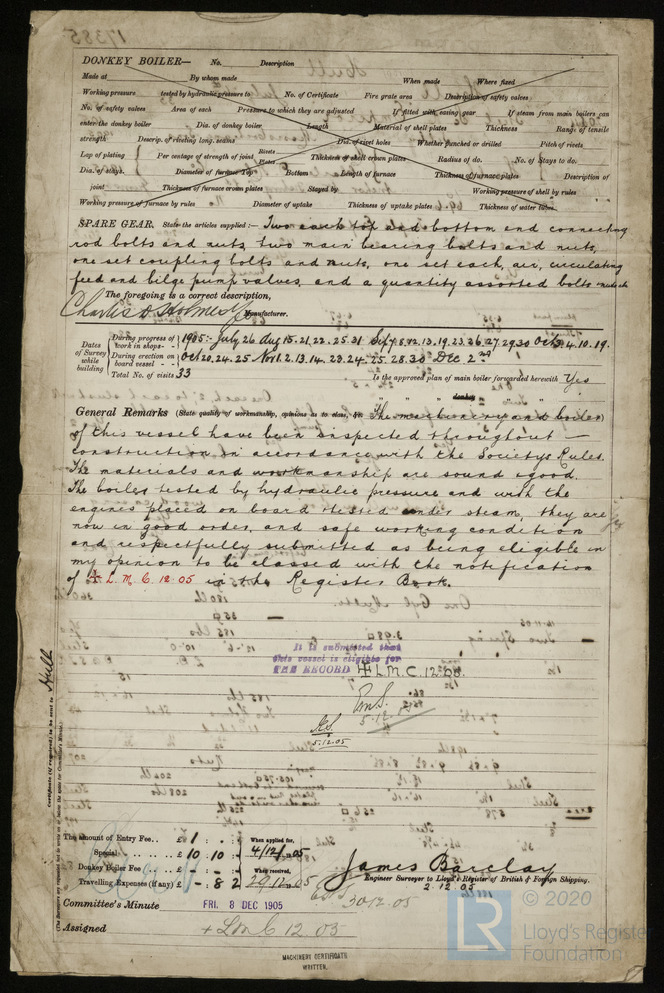 17385
DONKEY BOILER— No. Description
Made at By whom made When made Where fixed
Working pressure tested by hydraulic pressure to No. of Certificate Fire grate area Description of safety valves
No. of safety valves Area of each Pressure to which they are adjusted If fitted with easing gear If steam from main boilers can
enter the donkey boiler Dia. of donkey boiler Length Material of shell plates Thickness Range of tensile
strength Descrip. of riveting long. seams Dia. of rivet holes Whether punched or drilled Pitch of rivets
Lap of plating Per centage of strength of joint Rivets Plates Thickness of shell crown plates Radius of do. No. of Stays to do.
Dia. of stays. Diameter of furnace Top Bottom Length of furnace Thickness of furnace plates Description of
joint Thickness of furnace crown plates Stayed by Working pressure of shell by rules
Working pressure of furnace by rules Diameter of uptake Thickness of uptake plates Thickness of water tubes
SPARE GEAR. State the articles supplied:— Two each top and bottom end connecting
rod bolts and nuts, two main bearing bolts and nuts,
one set coupling bolts and nuts, one set each, air, circulating
feed and bilge pump valves, and a quantity assorted bolts nuts &c
The foregoing is a correct description,
Charles D Holmes & Co Manufacturer.
Dates of Survey while building
During progress of work in shops- 1905:- July 26 Aug 15.21.22.25.31 Sep 7.8.12.13.19.23.26.27.29.30 Oct 3.4.10.19.
During erection on board vessel - - Oct 20.24.25 Nov 1.2.13.14.23.24.25.28.30 Dec 2nd
Total No. of visits 33 Is the approved plan of main boiler forwarded herewith Yes
" " " donkey " " "
General Remarks (State quality of workmanship, opinions as to class, &c. The machinery and boiler
of this vessel have been inspected throughout
construction in accordance with the Societys Rules.
The materials and workmanship are sound & good.
The boiler tested by hydraulic pressure and with the
engines placed on board tested under steam, they are
now in good order, and safe working condition
and respectfully submitted as being eligible in
my opinion to be classed with the notification
of + L.M.C. 12.05 in the Register Book.
It is submitted that
this vessel is eligible for
THE RECORD + L.M.C. 12.05.
5.12.05
5.12.05
Certificate (if required) to be sent to Hull
The amount of Entry Fee.. £ 1 : - : When applied for,
Special .. .. £ 10 : 10 : 4/12/05
Donkey Boiler Fee .. £ - : - : When received,
Travelling Expenses (if any) £ - : 8 : 2 29.12.05
James Barclay
Engineer Surveyor to Lloyd's Register of British & Foreign Shipping.
2.12.05
30.12.05
Committee's Minute FRI. 8 DEC 1905
Assigned + LMC 12.05
MACHINERY CERTIFICATE
WRITTEN.
LR © 2020
Lloyd's Register
Foundation